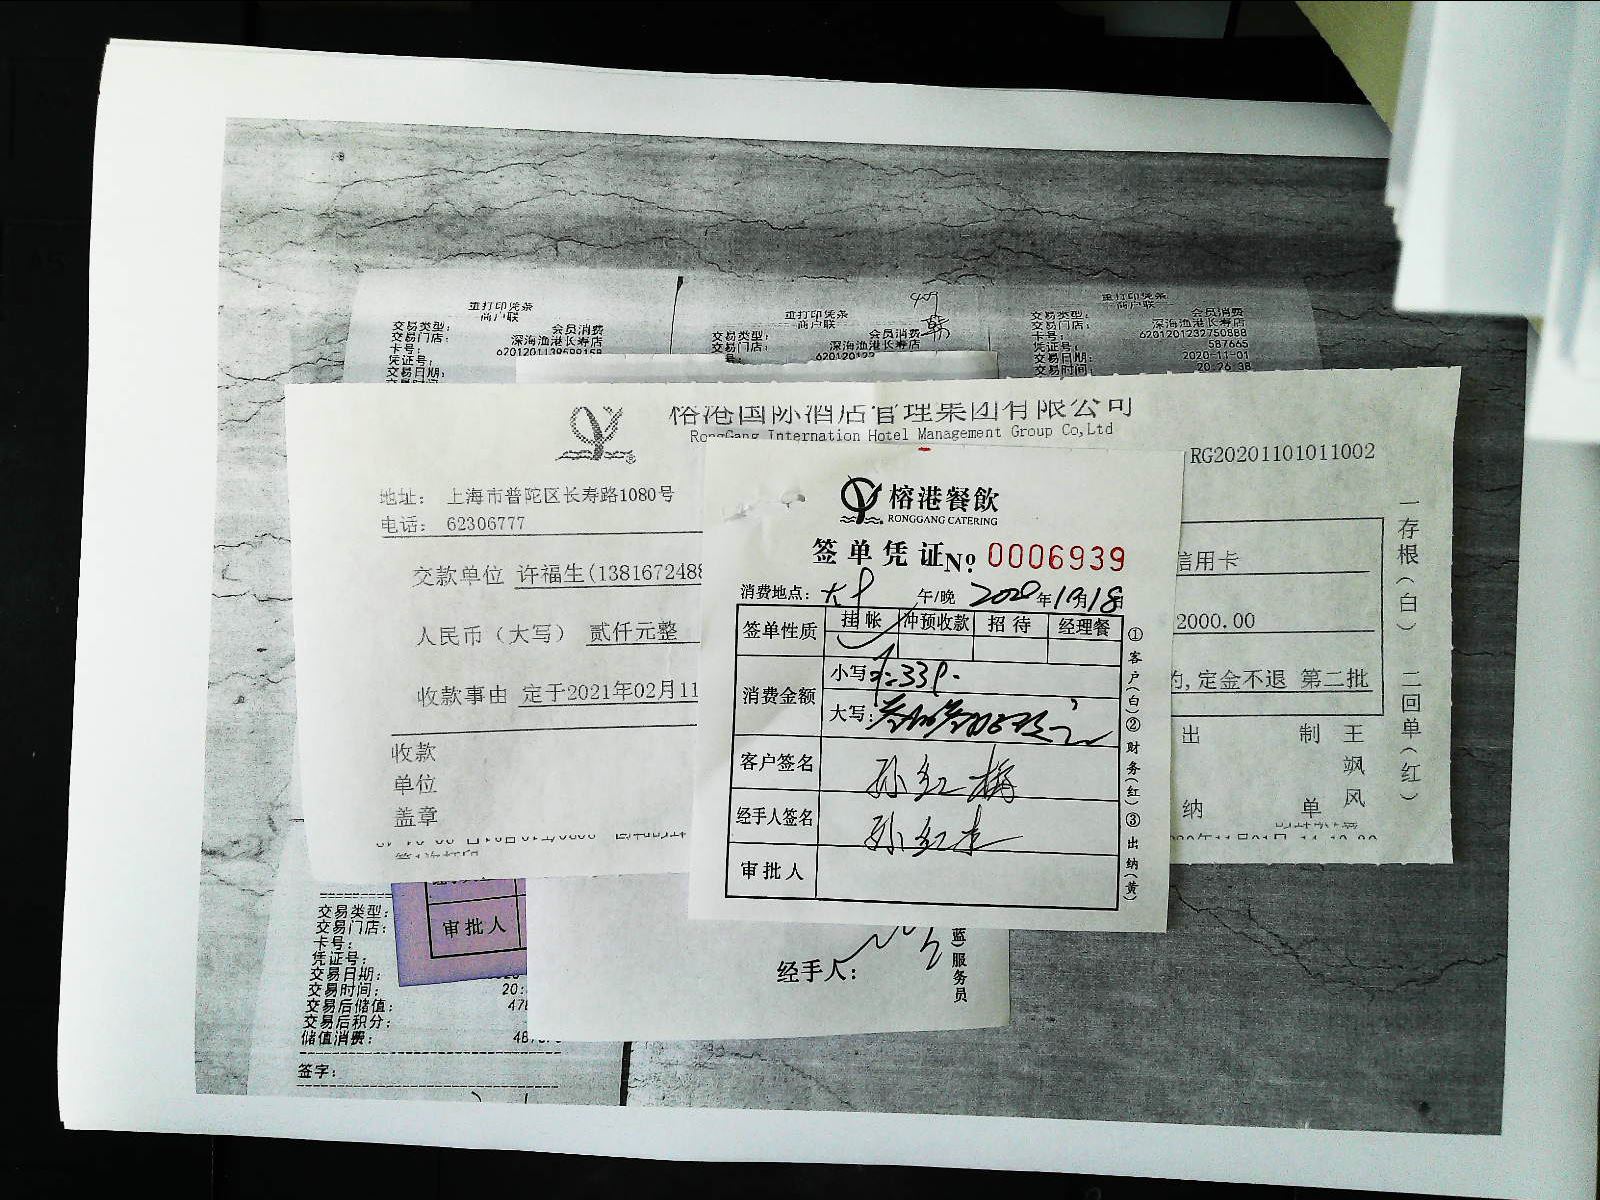 重打印凭条
商户联
交易类型: 会员消费
交易门店: 深海渔港长寿店
卡号:
凭证号:
交易日期:
重打印凭条
商户联
交易类型: 会员消费
交易门店: 深海渔港长寿店
重打印凭条
商户联
交易类型: 会员消费
交易门店: 深海渔港长寿店
卡号: 6201201232750888
凭证号: 587665
交易日期: 2020-11-01
交易时间: 20:26:38
榕港国际酒店管理集团有限公司
RongGang Internation Hotel Management Group Co,Ltd
RG20201101011002
地址: 上海市普陀区长寿路1080号
电话: 62306777
交款单位 许福生(1381672488
信用卡
人民币(大写) 贰仟元整
2000.00
收款事由 定于2021年02月11
约,定金不退 第二批
收款
单位
盖章
出纳
制单
王飒风
一存根(白) 二回单(红)
榕港餐飲
RONGGANG CATERING
签单凭证 No. 0006939
消费地点: 午/晚 2020年10月18日
签单性质 挂帐 冲预收款 招待 经理餐
消费金额 小写:
大写:
客户签名 孙红梅
经手人签名
审批人
①客户(白)②财务(红)③出纳(黄)
审批人
经手人:
蓝)服务员
交易类型:
交易门店:
卡号:
凭证号:
交易日期:
交易时间: 20:
交易后储值: 478
交易后积分:
储值消费:
签字: